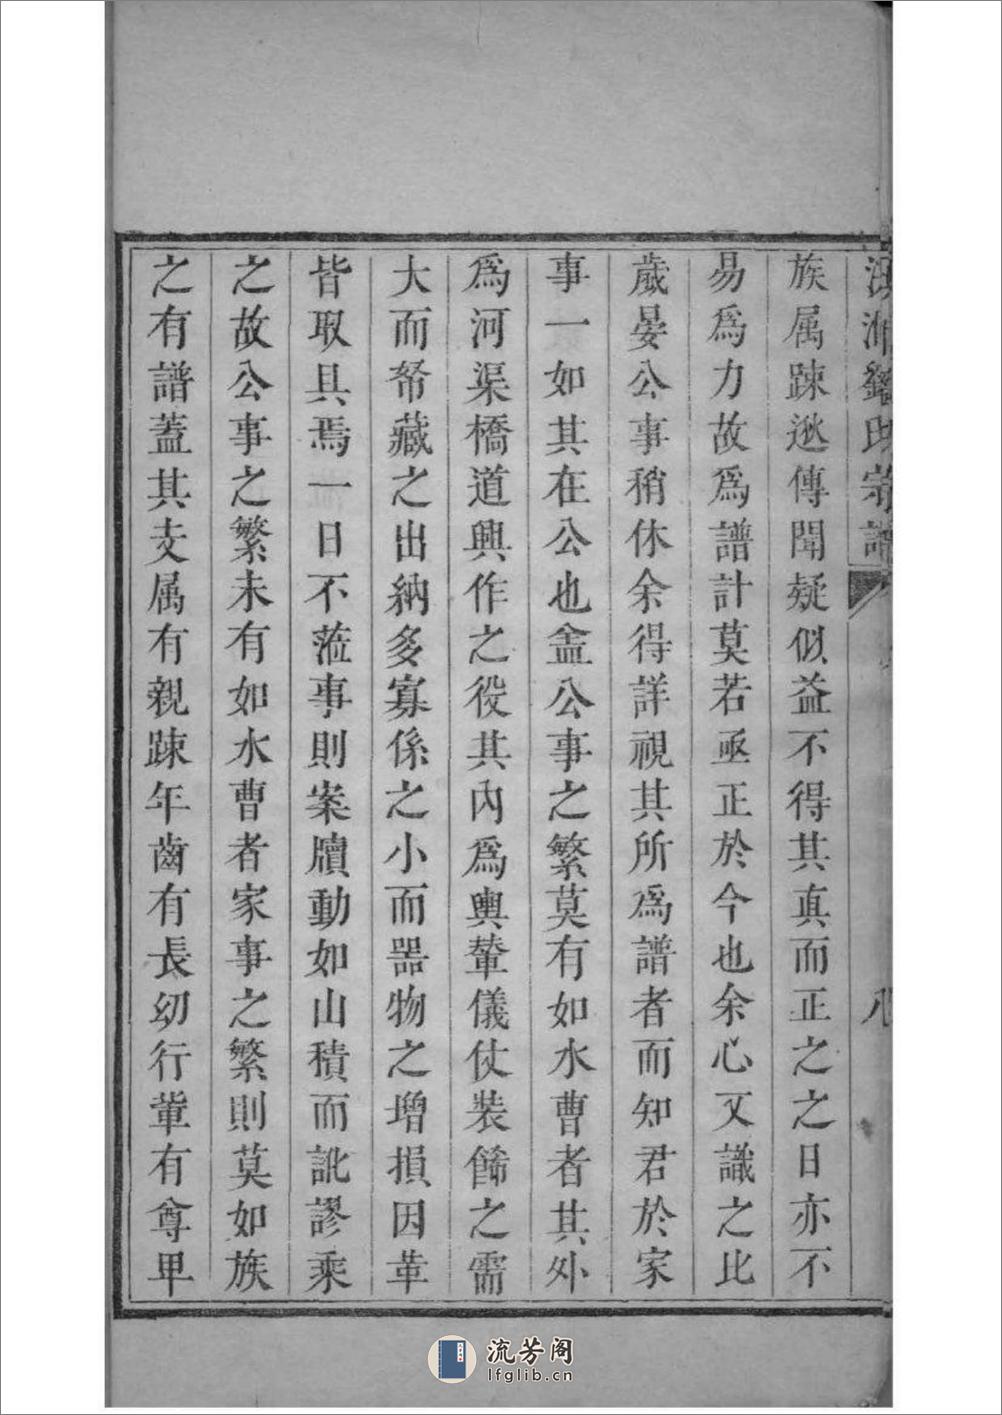 氏宗譜
八
族属踈逖傳聞疑似益不得其真而正之之日亦不
易爲力故爲譜計莫若亟正於今也余心又識之比
歲晏公事稍休余得詳視其所爲譜者而知君於家
事一如其在公也盖公事之繁莫有如水曹者其外
爲河渠橋道興作之役其内爲輿輦儀仗裝餙之需
大而帑藏之出納多寡係之小而噐物之增損因革
皆取具焉一日不蒞事則案牘動如山積而訛謬乘
之故公事之繁未有如水曹者家事之繁則莫如族
之有譜蓋其支属有親踈年齒有長幼行軰有尊卑
流芳阁
lfglib.cn